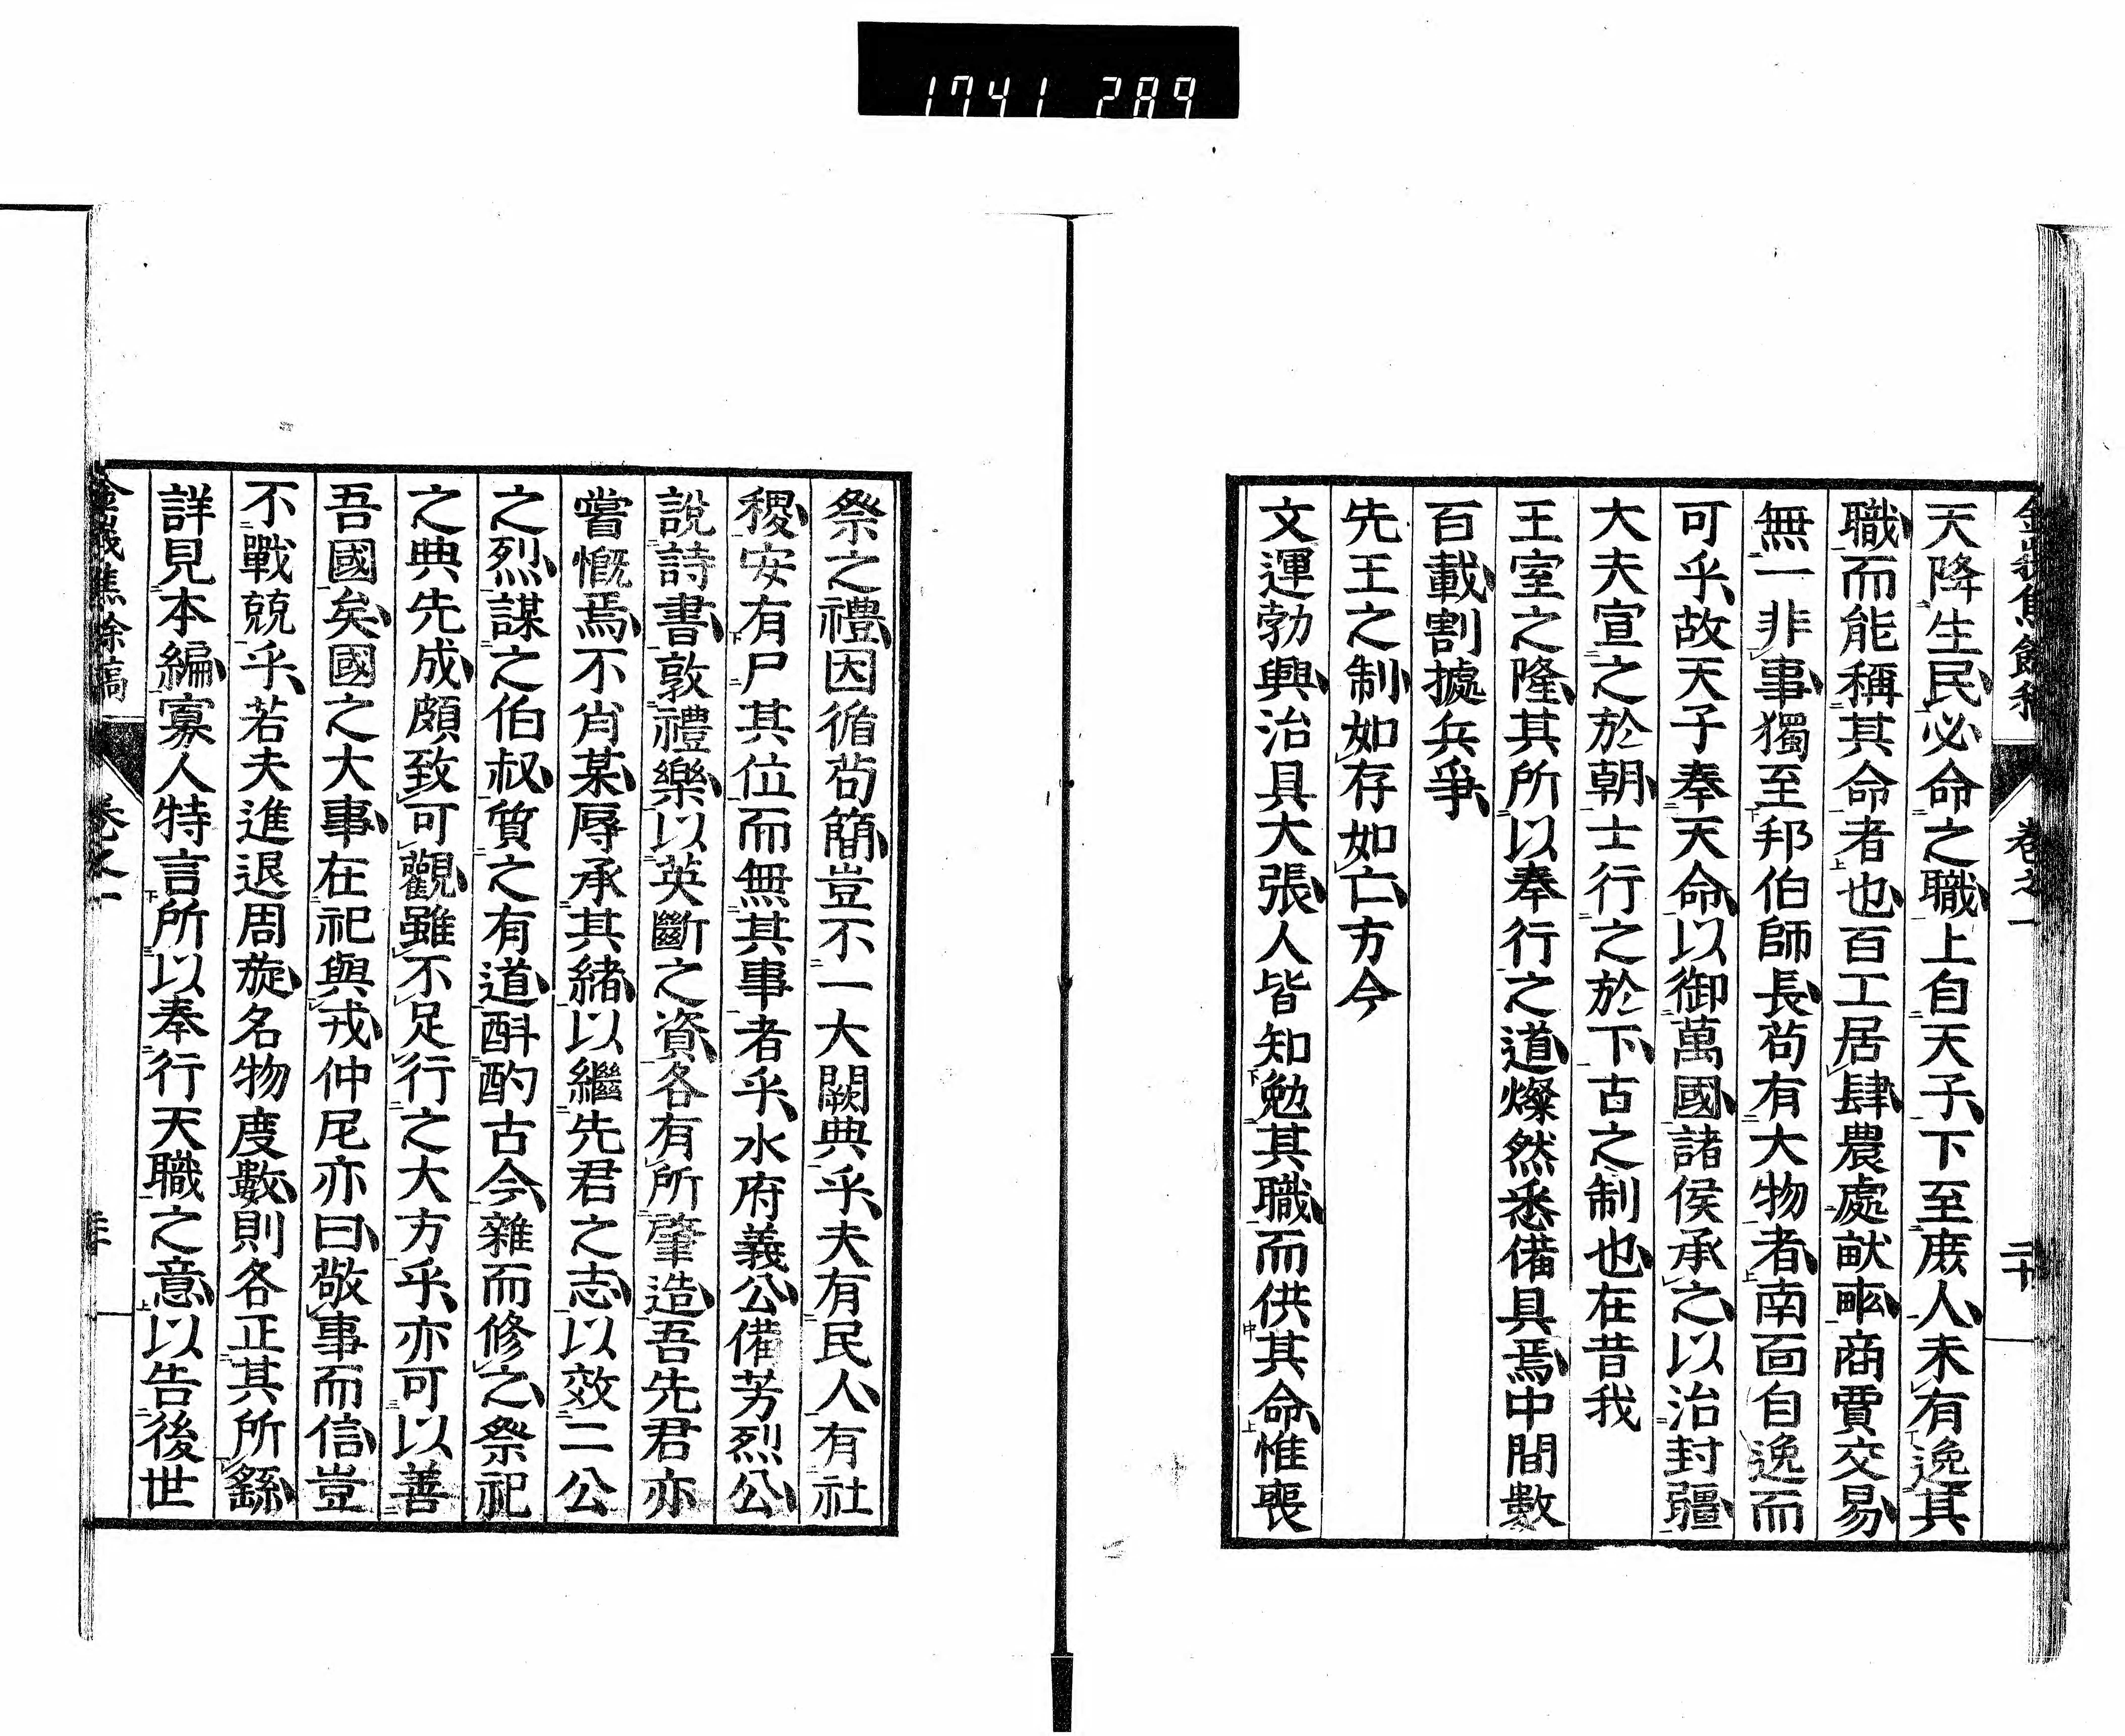 1741 289
卷之一
二十
天降生民必命之職上自天子下至庶人未有逸其
職而能稱其命者也百工居肆農處畎畝商賈交易
無一非事獨至邦伯師長苟有大物者南面自逸而
可乎故天子奉天命以御萬國諸侯承之以治封疆
大夫宣之於朝士行之於下古之制也在昔我
王室之隆其所以奉行之道燦然悉備具焉中間數
百載割據兵爭
先王之制如存如亡方今
文運勃興治具大張人皆知勉其職而供其命惟喪
祭之禮因循苟簡豈不一大闕典乎夫有民人有社
稷安有尸其位而無其事者乎水府義公備芳烈公
說詩書敦禮樂以英斷之資各有所肇造吾先君亦
嘗慨焉不肖某辱承其緒以繼先君之志以效二公
之烈謀之伯叔質之有道斟酌古今雜而修之祭祀
之典先成頗致可觀雖不足行之大方乎亦可以善
吾國矣國之大事在祀與戎仲尼亦曰敬事而信豈
不戰兢乎若夫進退周旋名物度數則各正其所繇
詳見本編寡人特言所以奉行天職之意以告後世
焦餘稿
卷之一